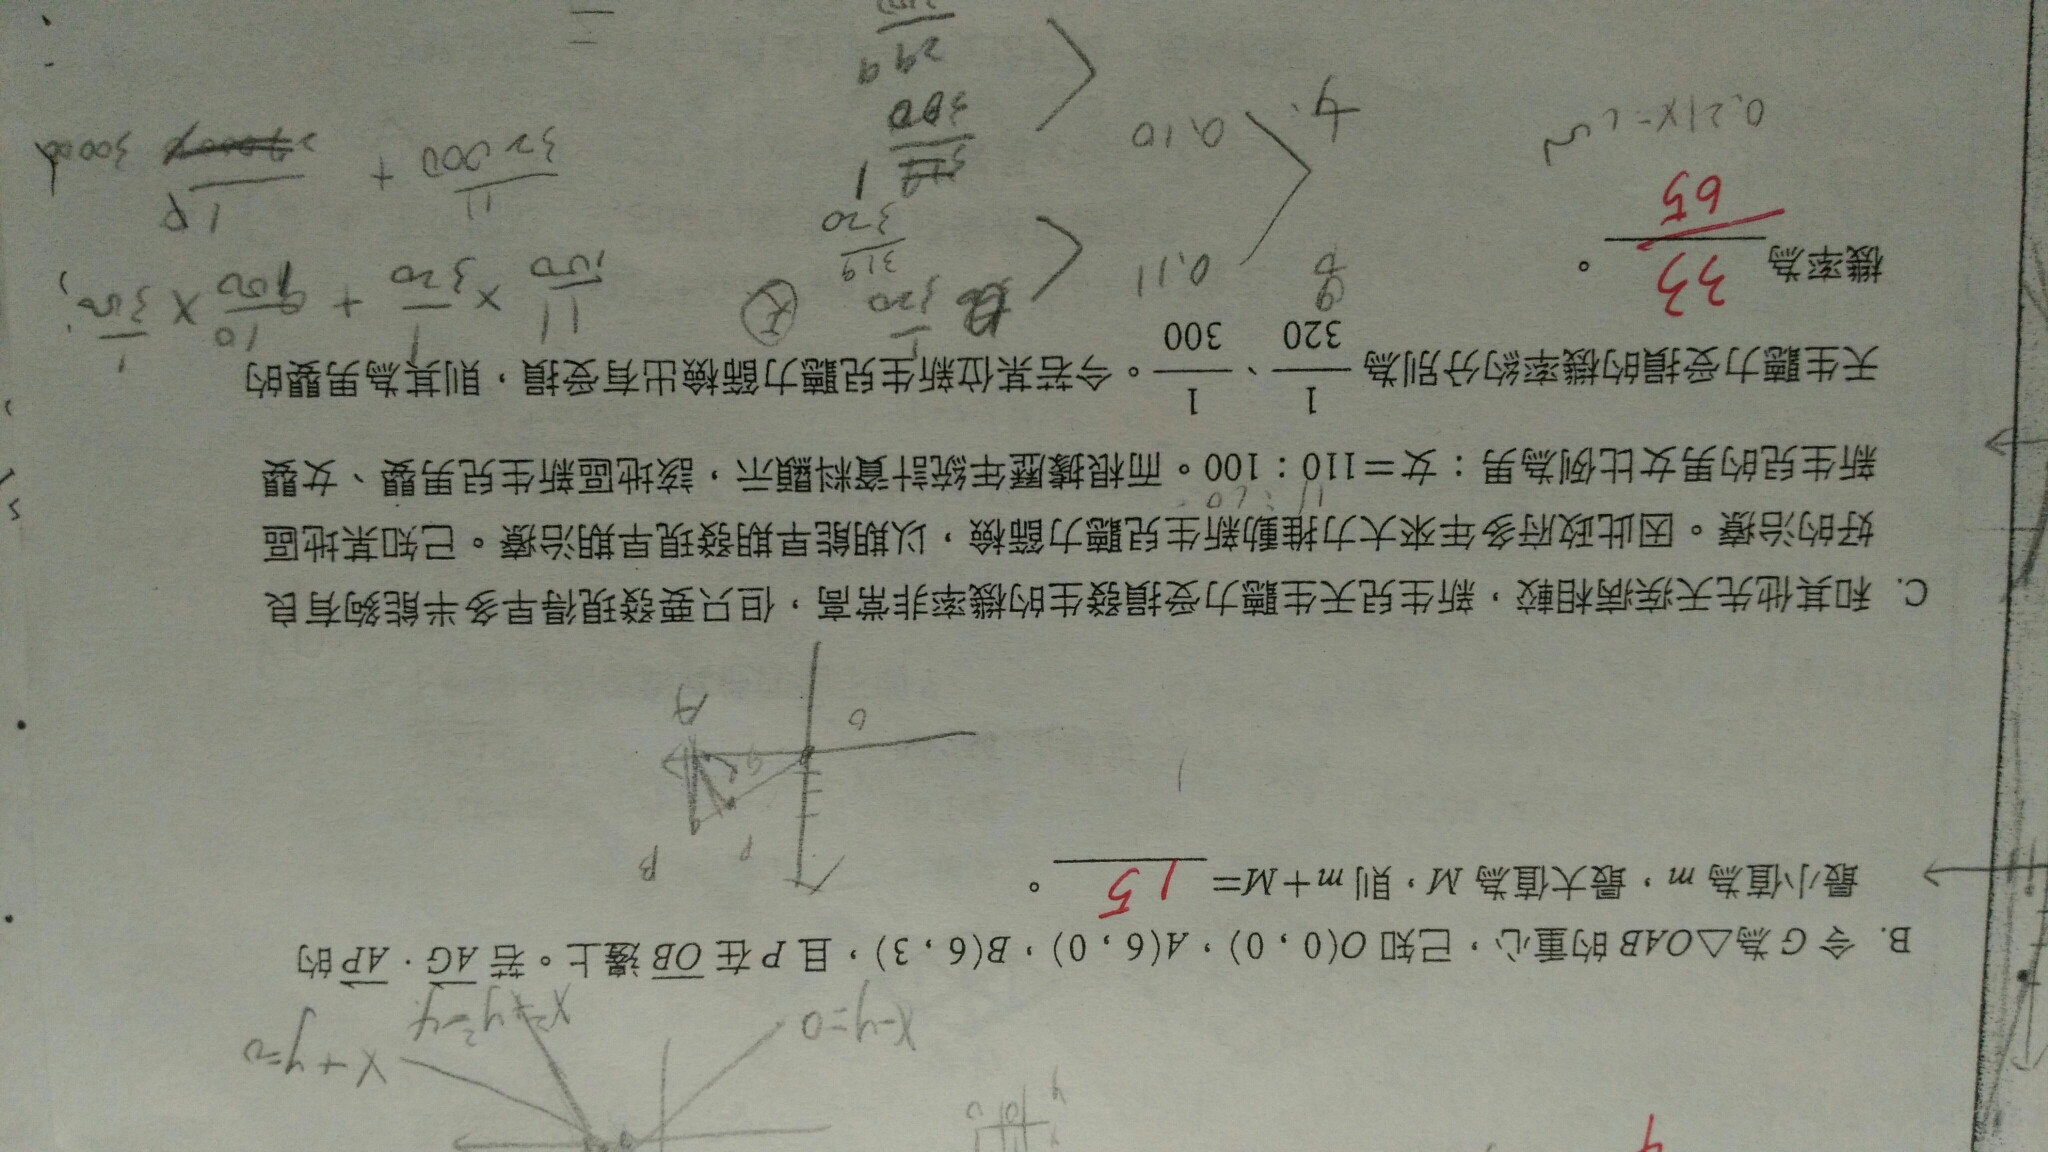 x-y=0
x²+y²=4
x+y=0
B. 令G為△OAB的重心，已知O(0，0)，A(6，0)，B(6，3)，且P在OB邊上。若AG．AP的
最小值為m，最大值為M，則m+M= 15 。
B
P
G
O
A
C. 和其他先天疾病相較，新生兒天生聽力受損發生的機率非常高，但只要發現得早多半能夠有良
好的治療。因此政府多年來大力推動新生兒聽力篩檢，以期能早期發現早期治療。已知某地區
新生兒的男女比例為男：女＝110：100。而根據歷年統計資料顯示，該地區新生兒男嬰、女嬰
天生聽力受損的機率約分別為 1/320 、 1/300 。今若某位新生兒聽力篩檢出有受損，則其為男嬰的
機率為 33/65 。
11/100 × 1/320 + 10/100 × 1/300
0.11
1/320
319/320
11/32000 +
30000
0.10
1/300
299